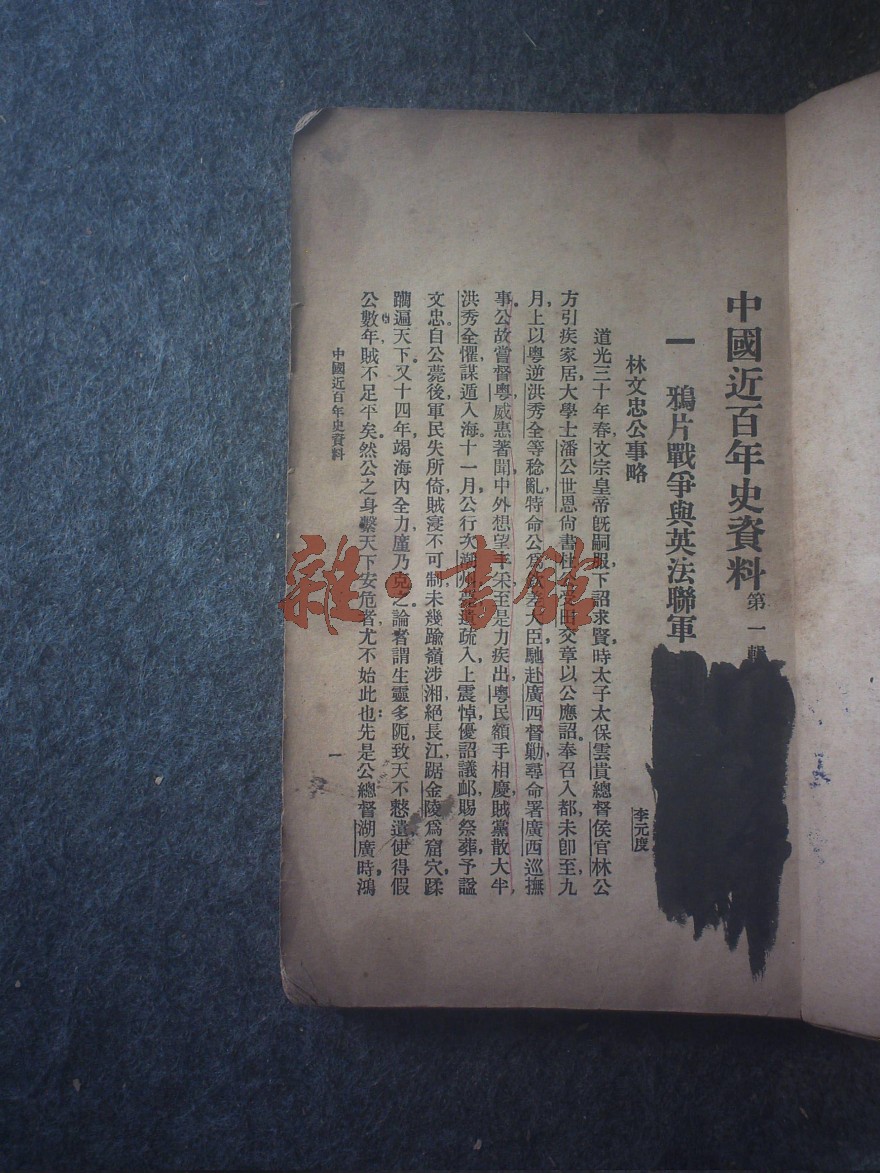 中國近百年史資料 第一輯
一 鴉片戰爭與英法聯軍
林文忠公事略
李元度
道光三十年春，文宗皇帝旣嗣服，下詔求賢，時太子太保雲貴總督侯官林公
方引疾家居，大學士潘公世恩尙書杜公受田交章以公應詔。奉召入都，未卽至。九
月，上以粵逆洪秀全等稔亂，特命公爲欽差大臣，馳赴廣西督勦，尋命署廣西巡撫
事。公故嘗督粵，威惠著聞，中外想望丰采，至是力疾出，粵民額手相慶，賊黨散大半，
洪秀全懼，謀遁入海。十一月，公行次潮州薨，遺疏入，上震悼，優詔議卹，賜祭葬，予謚
文忠。自公薨後，軍民失所倚，賊寖不可制，未幾，踰嶺涉湘，絕長江，踞金陵爲窟穴，蹂
躪遍天下。又十四年，竭海內全力，廑乃克之。論者謂生靈多阨，致天不憖遺，使得假
公數年，賊不足平矣。然公之身繫天下安危者，尤不始此也：先是公總督湖廣時，鴻
中國近百年史資料
一
雜·書館